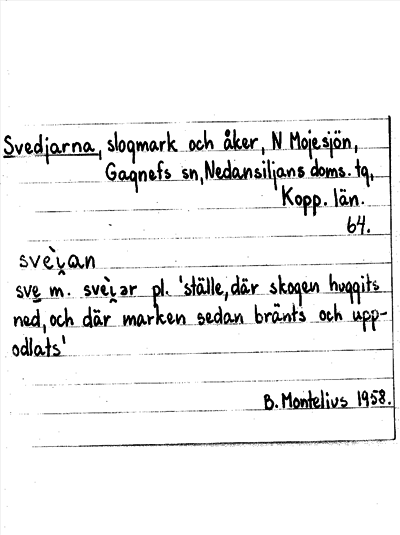 Svedjarna, slogmark och åker, N Mojesjön,
Gagnefs sn, Nedansiljans doms. tg,
Kopp. län.
64.
svèi̯an
sve̱ m. svèi̯ər pl. 'ställe, där skogen huggits
ned, och där marken sedan bränts och upp-
odlats'
B. Montelius 1958.